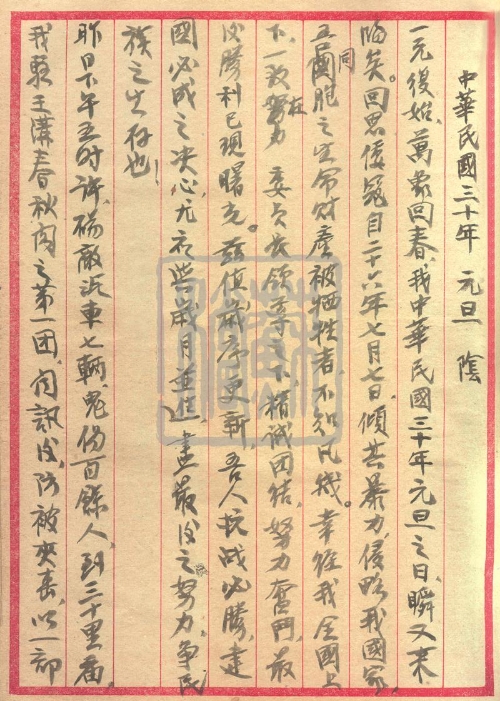 中華民國三十年 元旦 陰
一元復始，萬象回春，我中華民國三十年元旦之日，瞬又來
臨矣。回思倭寇自二十六年七月七日，傾其暴力，侵略我國家，
同胞之生命財產被犧牲者，不知凡幾。幸經我全國上
下，一致在 委員長領導之下，精誠團結，努力奮鬥，最
後勝利已現曙光。茲值歲序更新，吾人抗戰必勝，建
國必成之決心，尤應與歲月並進，盡最後之努力，爭民
族之生存也！
昨日下午五时許，碭敵汽車七輛，鬼份百餘人，到三十里廟，
我東王溝春秋阁之第一团，聞訊後，防被夾擊，以一部